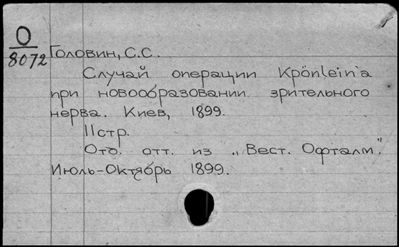 О
8072
Головин, С.С.
Случай операции Krönlein'a
при новообразовании зрительного
нерва. Киев, 1899.
11стр.
Отд. отт. из „Вест. Офталм."
Июль-Октябрь 1899.